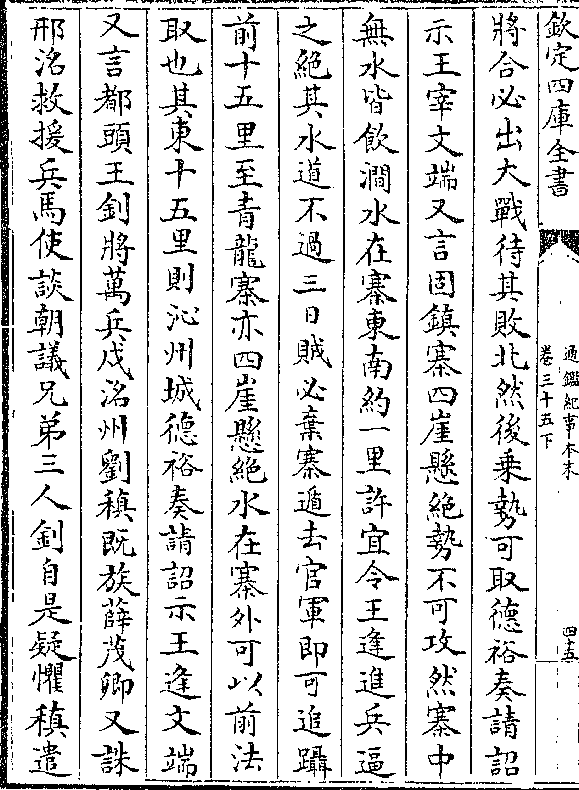 欽定四庫全書
通鑑紀事本末
卷三十五下
四十五
將合必出大戰待其敗北然後乘勢可取德裕奏請詔
示王宰文端又言固鎮寨四崖懸絶勢不可攻然寨中
無水皆飲澗水在寨東南約一里許宜令王逢進兵逼
之絶其水道不過三日賊必棄寨遁去官軍即可追躡
前十五里至青龍寨亦四崖懸絶水在寨外可以前法
取也其東十五里則沁州城德裕奏請詔示王逢文端
又言都頭王釗將萬兵戍洺州劉稹既族薛茂卿又誅
邢洺救援兵馬使談朝議兄弟三人釗自是疑懼稹遣